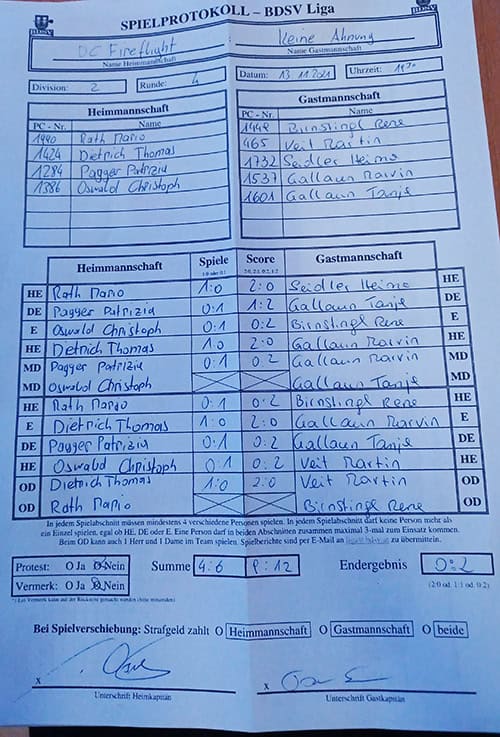 SPIELPROTOKOLL – BDSV Liga
BDSV BDSV
DC Fireflight Keine Ahnung
Name Heimmannschaft Name Gastmannschaft
Division: 2 Runde: 4 Datum: 13.11.2021 Uhrzeit: 19 30
Heimmannschaft Gastmannschaft
PC - Nr. Name PC - Nr. Name
1990 Rath Mario 1448 Birnstingl Rene
1424 Dietrich Thomas 465 Veit Martin
1284 Pagger Patrizia 1732 Seidler Heimo
1386 Oswald Christoph 1537 Gallaun Marvin
1601 Gallaun Tanja
Heimmannschaft Spiele Score Gastmannschaft
1:0 oder 0:1 2:0, 2:1, 0:2, 1:2
HE Rath Mario 1:0 2:0 Seidler Heimo HE
DE Pagger Patrizia 0:1 1:2 Gallaun Tanja DE
E Oswald Christoph 0:1 0:2 Birnstingl Rene E
HE Dietrich Thomas 1:0 2:0 Gallaun Marvin HE
MD Pagger Patrizia 0:1 0:2 Gallaun Marvin MD
MD Oswald Christoph Gallaun Tanja MD
HE Rath Mario 0:1 0:2 Birnstingl Rene HE
E Dietrich Thomas 1:0 2:0 Gallaun Marvin E
DE Pagger Patrizia 0:1 0:2 Gallaun Tanja DE
HE Oswald Christoph 0:1 0:2 Veit Martin HE
OD Dietrich Thomas 1:0 2:0 Veit Martin OD
OD Rath Mario Birnstingl Rene OD
In jedem Spielabschnitt müssen mindestens 4 verschiedene Personen spielen. In jedem Spielabschnitt darf keine Person mehr als
ein Einzel spielen, egal ob HE, DE oder E. Eine Person darf in beiden Abschnitten zusammen maximal 3-mal zum Einsatz kommen.
Beim OD kann auch 1 Herr und 1 Dame im Team spielen. Spielberichte sind per E-Mail an zu übermitteln.
Protest: O Ja O Nein Summe 4:6 9:12 Endergebnis 0:2
Vermerk: O Ja O Nein (2:0 od. 1:1 od. 0:2)
*) Ein Vermerk kann auf der Rückseite gemacht werden (bitte umwenden)
Bei Spielverschiebung: Strafgeld zahlt O Heimmannschaft O Gastmannschaft O beide
x x
Unterschrift Heimkapitän Unterschrift Gastkapitän